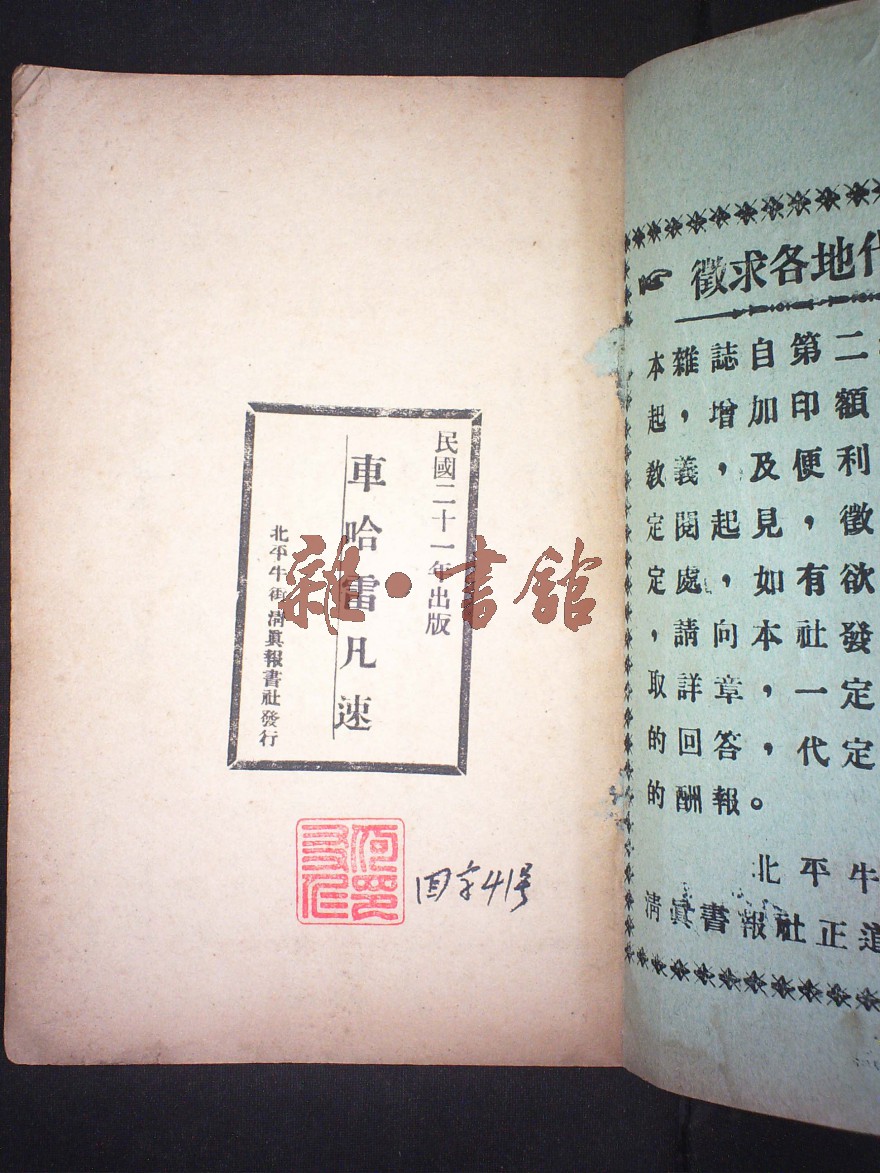 民國二十一年出版
車哈雷凡速
北平牛街清眞報書社發行
雜·書館
回字41号
徵求各地代
本雜誌自第二
起，增加印額
教義，及便利
定閱起見，徵
定處，如有欲
，請向本社發
取詳章，一定
的回答，代定
的酬報。
北平牛
清眞書報社正道